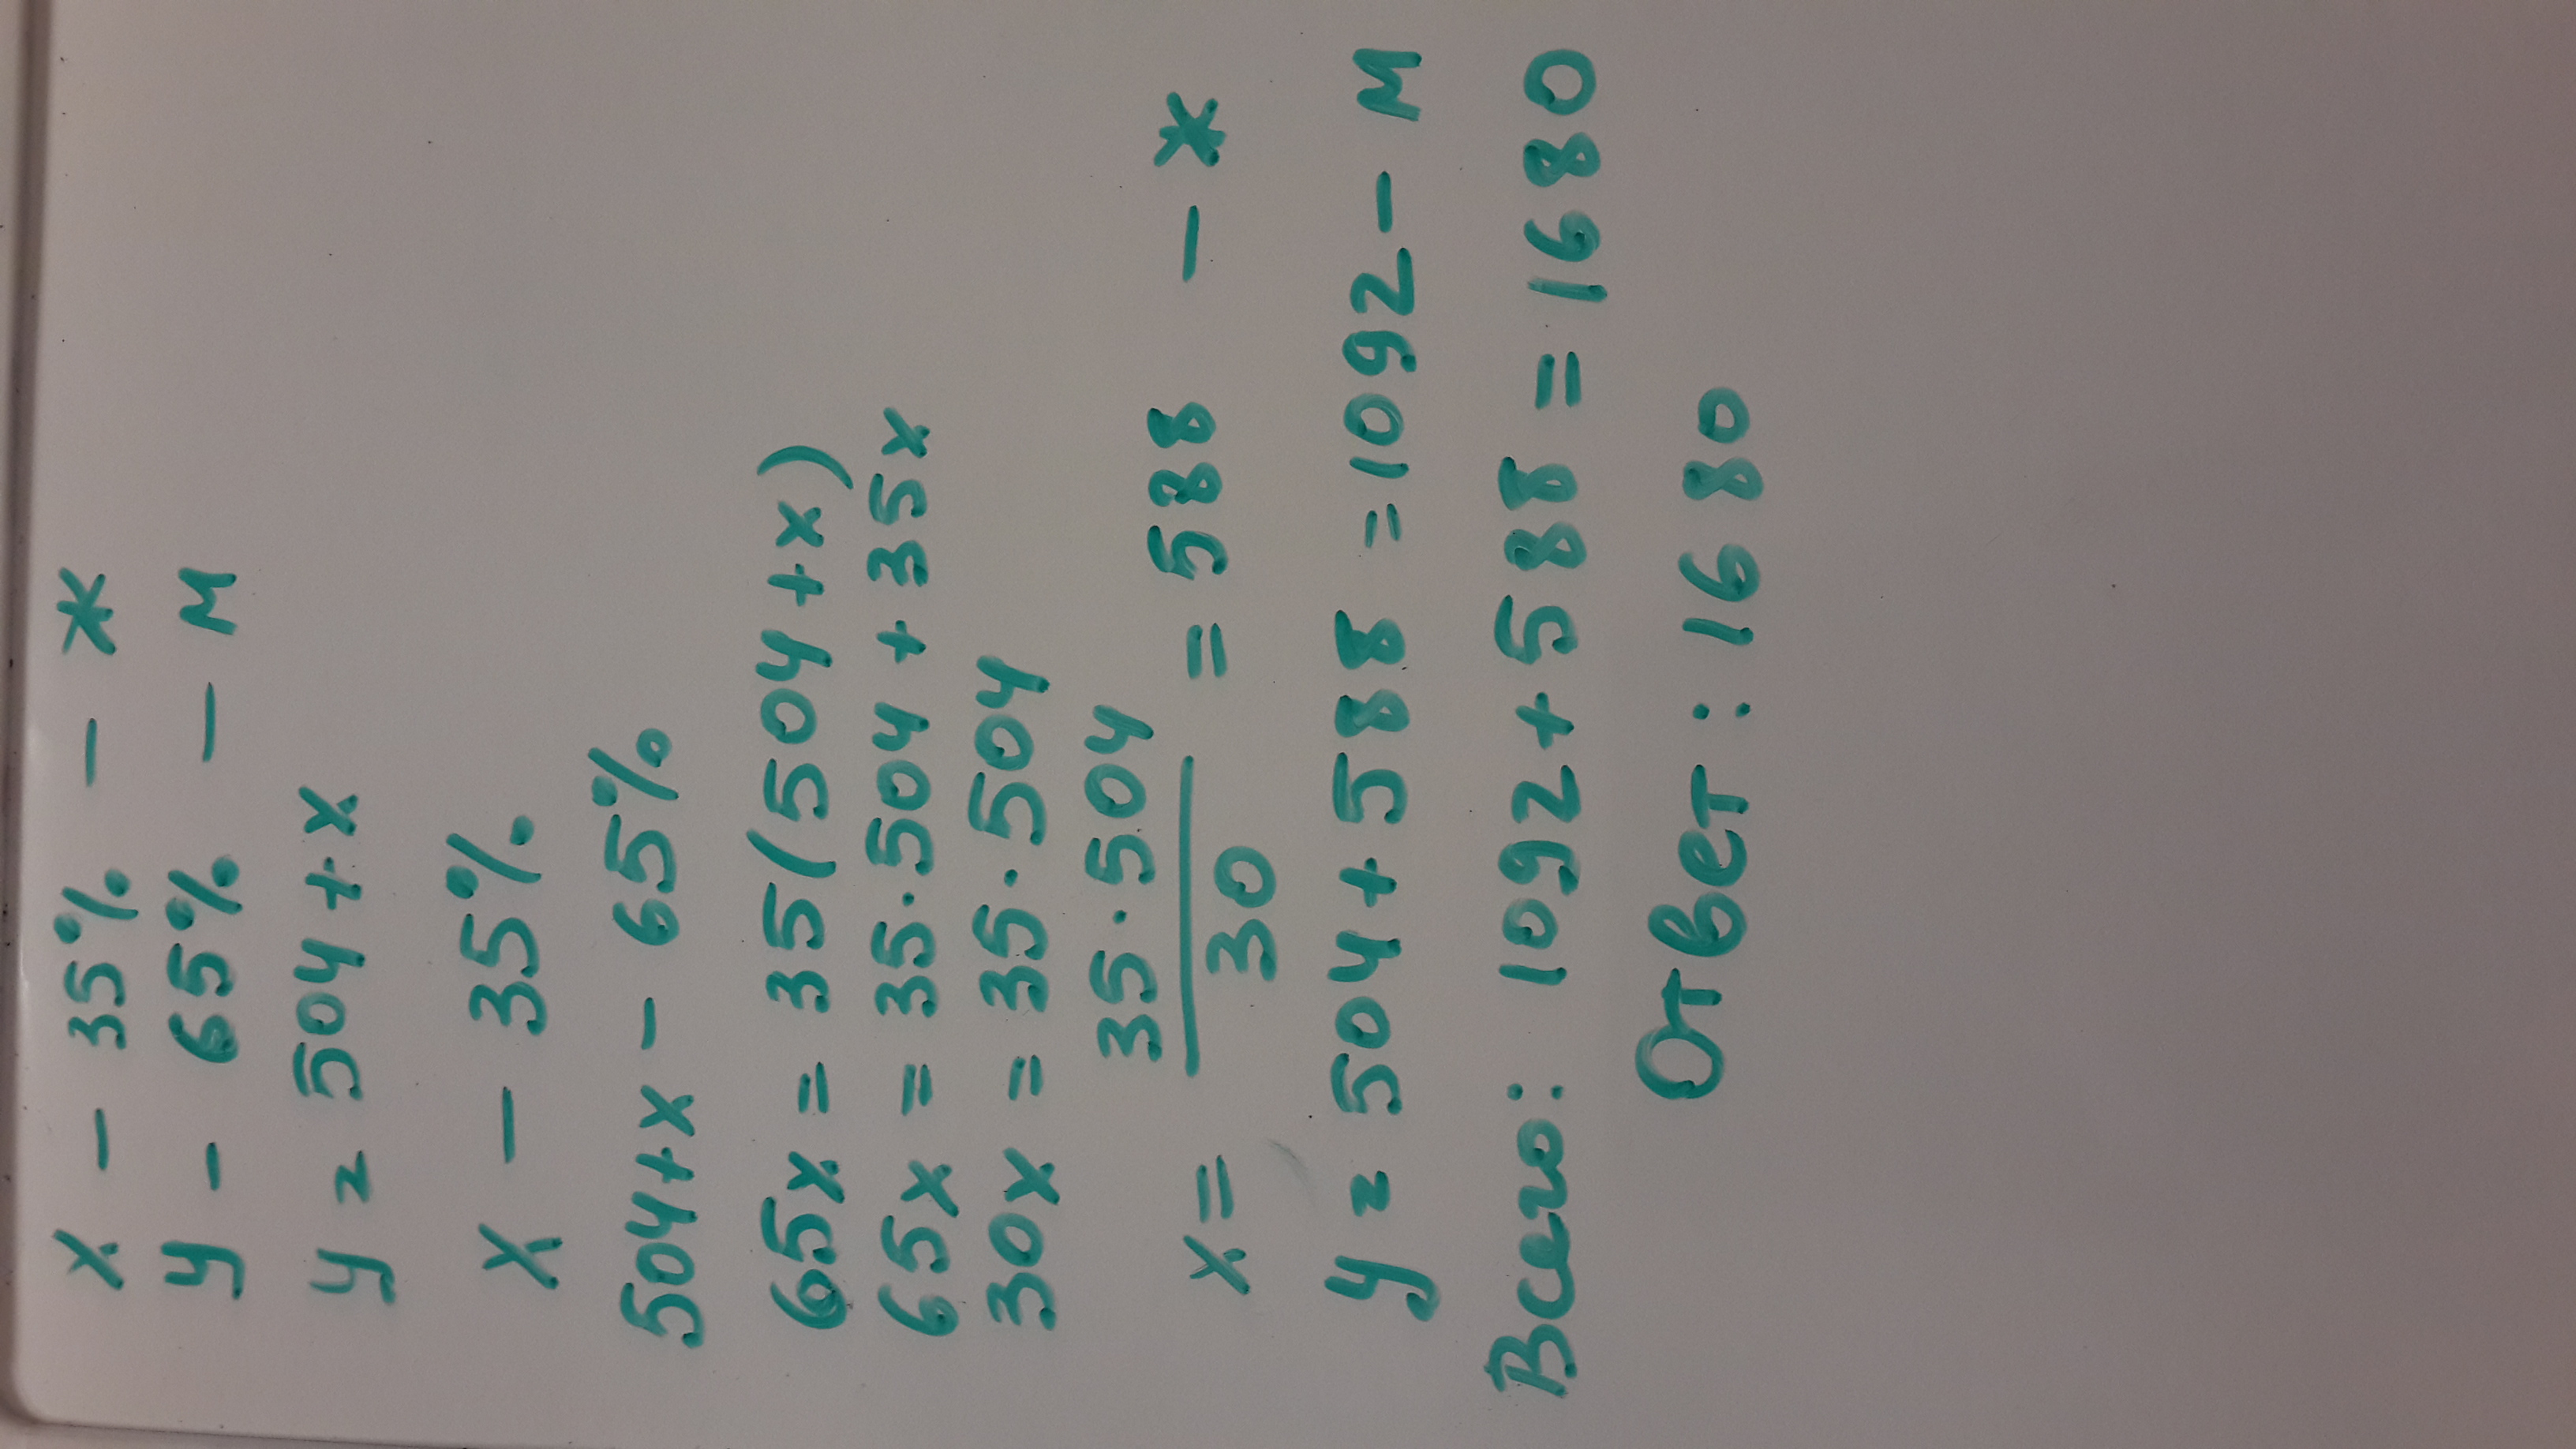 x – 35% – Ж
y – 65% – М
y = 504 + x
x – 35%
504+x – 65%
65x = 35(504+x)
65x = 35·504 + 35x
30x = 35·504
x = 35·504 / 30 = 588 – Ж
y = 504 + 588 = 1092 – М
Всего: 1092 + 588 = 1680
Ответ: 1680